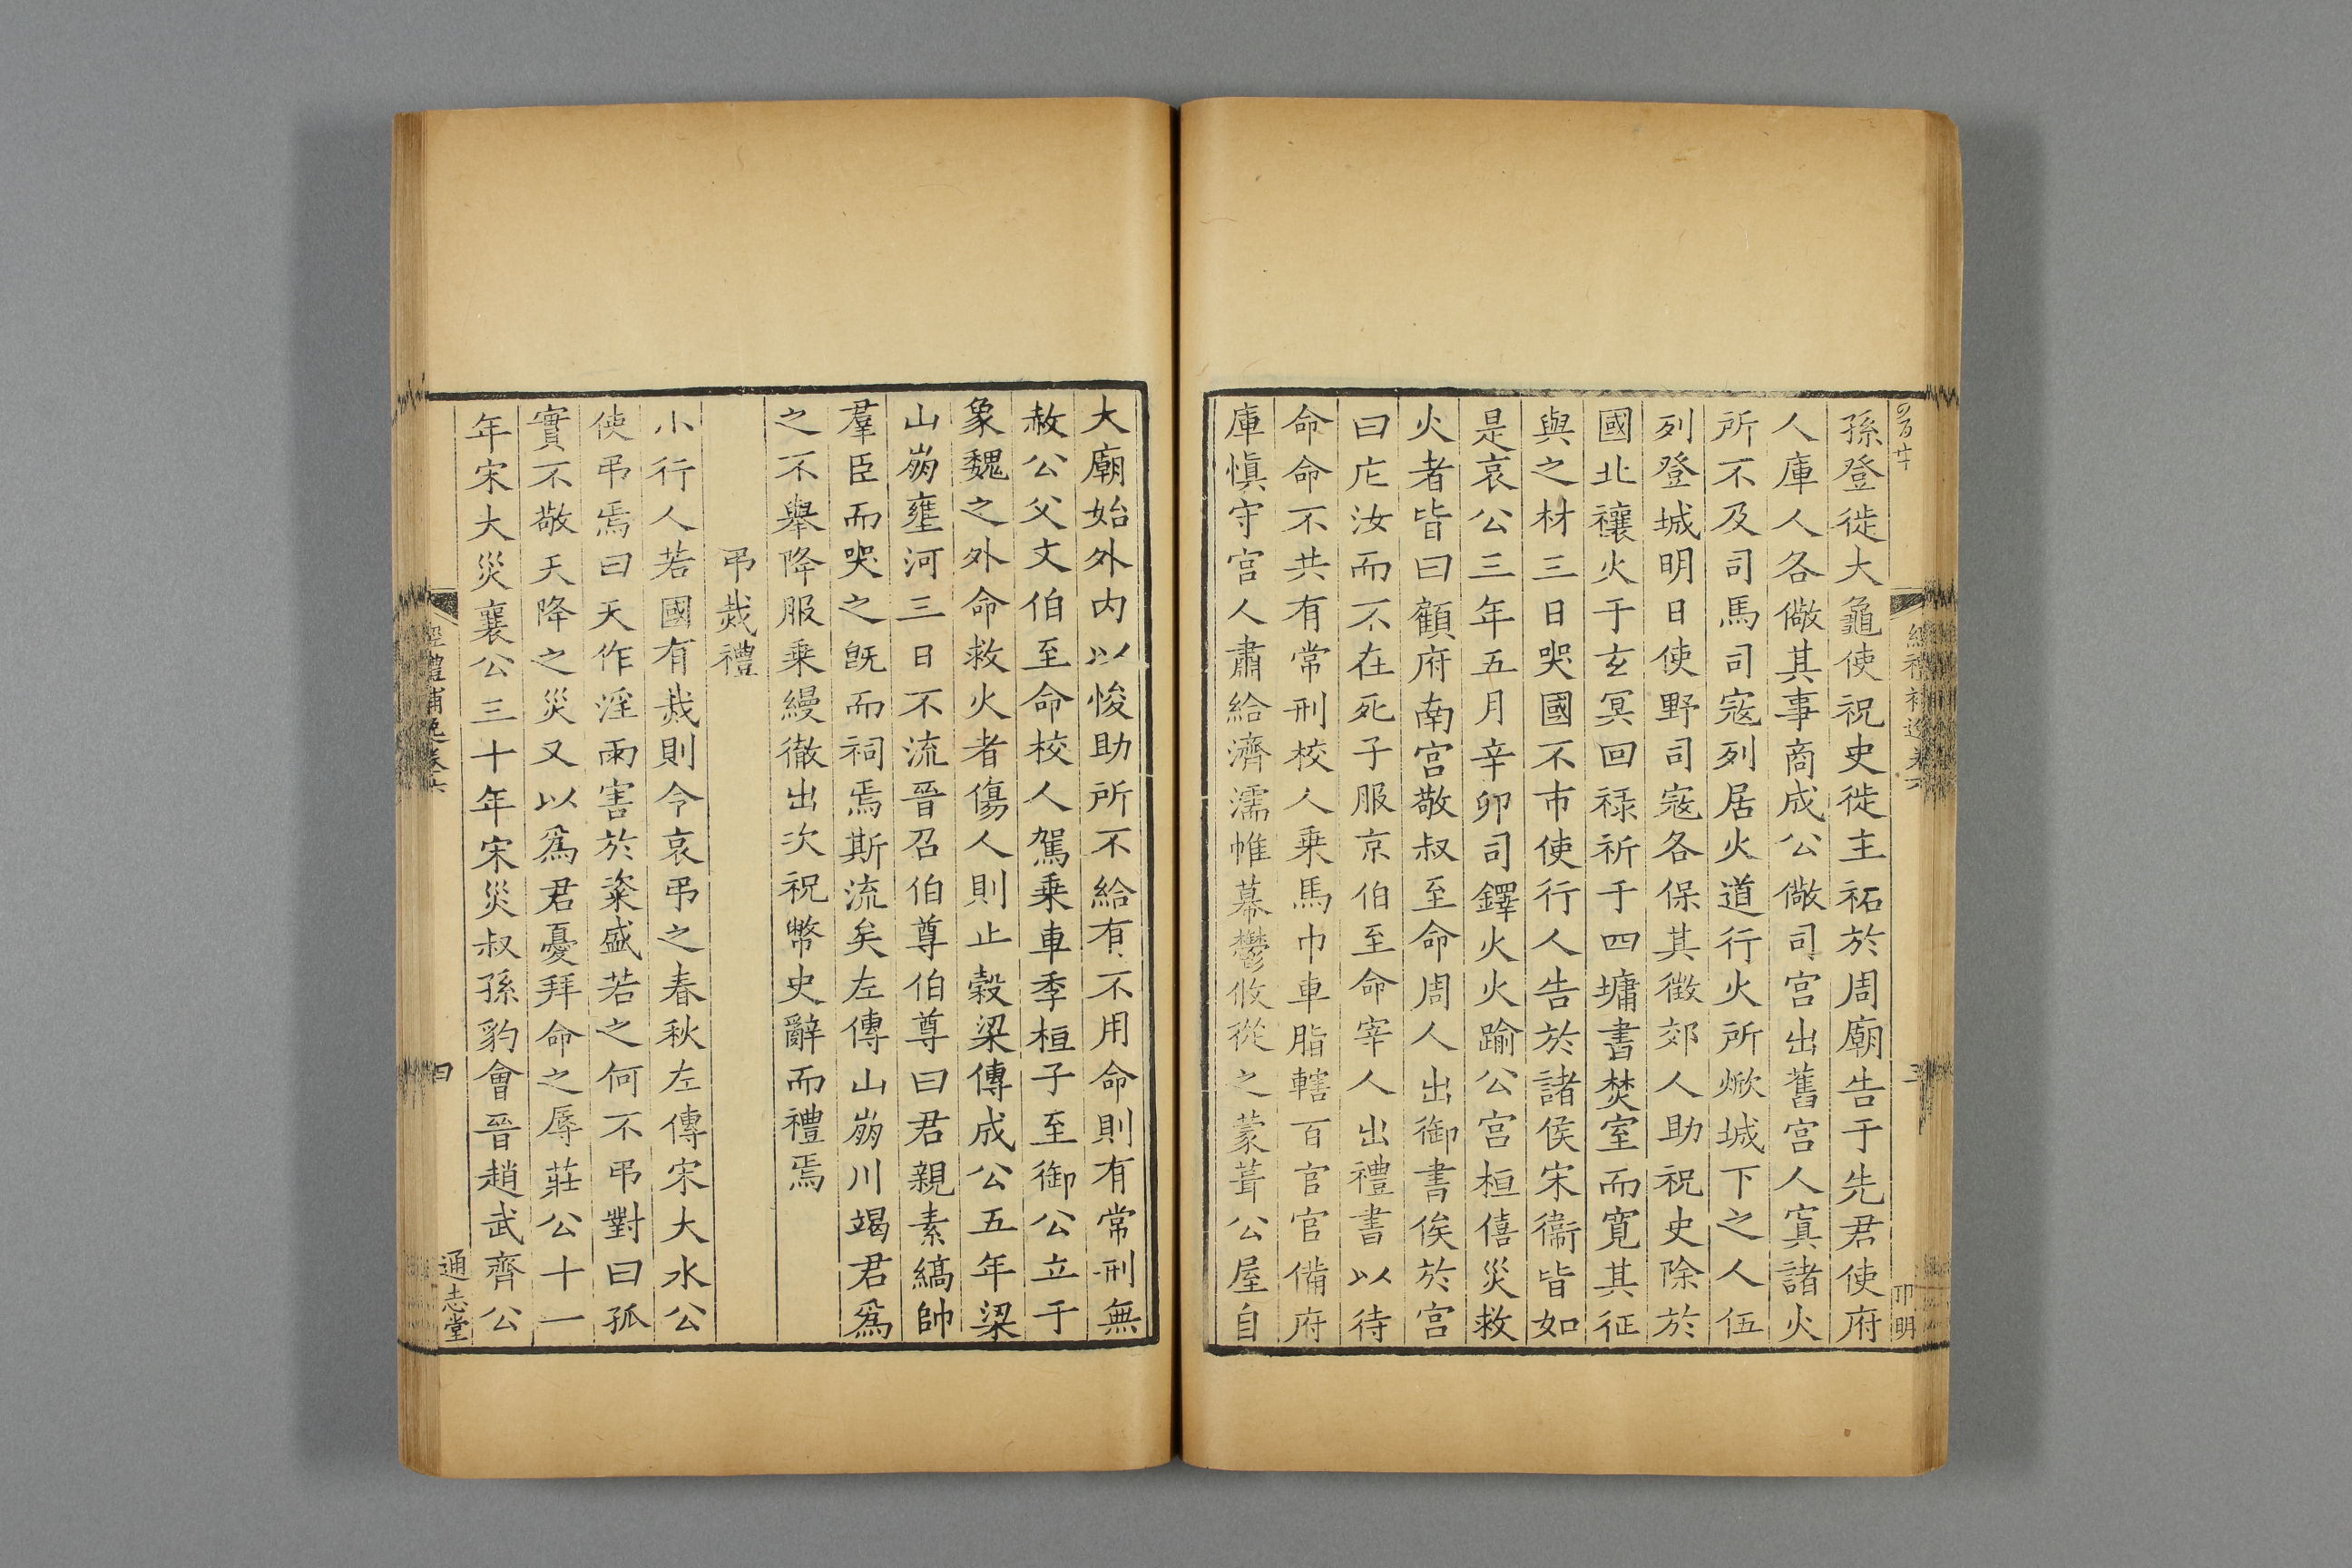 孫登徙大龜使祝史徙主祏於周廟告于先君使府
人庫人各儆其事商成公儆司宫出舊宫人寘諸火
所不及司馬司寇列居火道行火所焮城下之人伍
列登城明日使野司寇各保其徵郊人助祝史除於
國北禳火于玄冥回禄祈于四墉書焚室而寛其征
與之材三日哭國不市使行人告於諸侯宋衞皆如
是哀公三年五月辛卯司鐸火火踰公宫桓僖災救
火者皆曰顧府南宫敬叔至命周人出御書俟於宫
曰庀汝而不在死子服京伯至命宰人出禮書以待
命命不共有常刑校人乗馬巾車脂轄百官官備府
庫慎守宫人肅給濟濡帷幕鬱攸從之蒙葺公屋自
大廟始外内以悛助所不給有不用命則有常刑無
赦公父文伯至命校人駕乗車季桓子至御公立于
象魏之外命救火者傷人則止穀梁傳成公五年梁
山崩壅河三日不流晉召伯尊伯尊曰君親素縞帥
羣臣而哭之旣而祠焉斯流矣左傳山崩川竭君爲
之不舉降服乗縵徹出次祝幣史辭而禮焉
弔烖禮
小行人若國有烖則令哀弔之春秋左傳宋大水公
使弔焉曰天作淫雨害於粢盛若之何不弔對曰孤
實不敬天降之災又以爲君憂拜命之辱莊公十一
年宋大災襄公三十年宋災叔孫豹會晉趙武齊公
經禮補逸卷六
四
通志堂